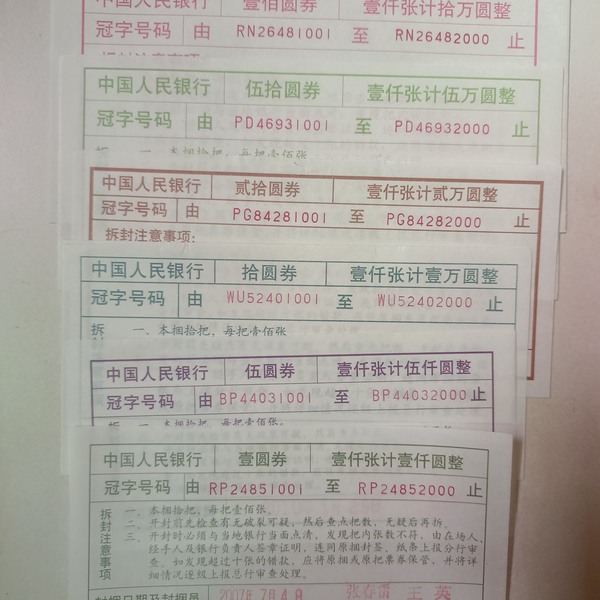 壹佰圆券 壹仟张计拾万圆整
冠字号码 由 RN26481001 至 RN26482000 止
拆封注意事项
中国人民银行 伍拾圆券 壹仟张计伍万圆整
冠字号码 由 PD46931001 至 PD46932000 止
拆 一、本捆拾把，每把壹佰张
中国人民银行 贰拾圆券 壹仟张计贰万圆整
冠字号码 由 PG84281001 至 PG84282000 止
拆封注意事项:
中国人民银行 拾圆券 壹仟张计壹万圆整
冠字号码 由 WU52401001 至 WU52402000 止
拆 一、本捆拾把，每把壹佰张
中国人民银行 伍圆券 壹仟张计伍仟圆整
冠字号码 由 BP44031001 至 BP44032000 止
一、本捆拾把，每把壹佰张。
中国人民银行 壹圆券 壹仟张计壹仟圆整
冠字号码 由 RP24851001 至 RP24852000 止
拆封注意事项
一、本捆拾把，每把壹佰张。
二、开封前先检查有无破裂可疑，然后查点把数，无疑后再拆。
三、开封时必须与当地银行当面点清。发现把内张数不符，由在场人、
经手人及银行负责人签章证明，连同原捆封签、纸条上报分行审
查。如发现超过十张的错款，应将原捆或原把票券保管，并将详
细情况逐级上报总行审查处理。
封捆日期及封捆员 2007年7月4日 张春雷 王英